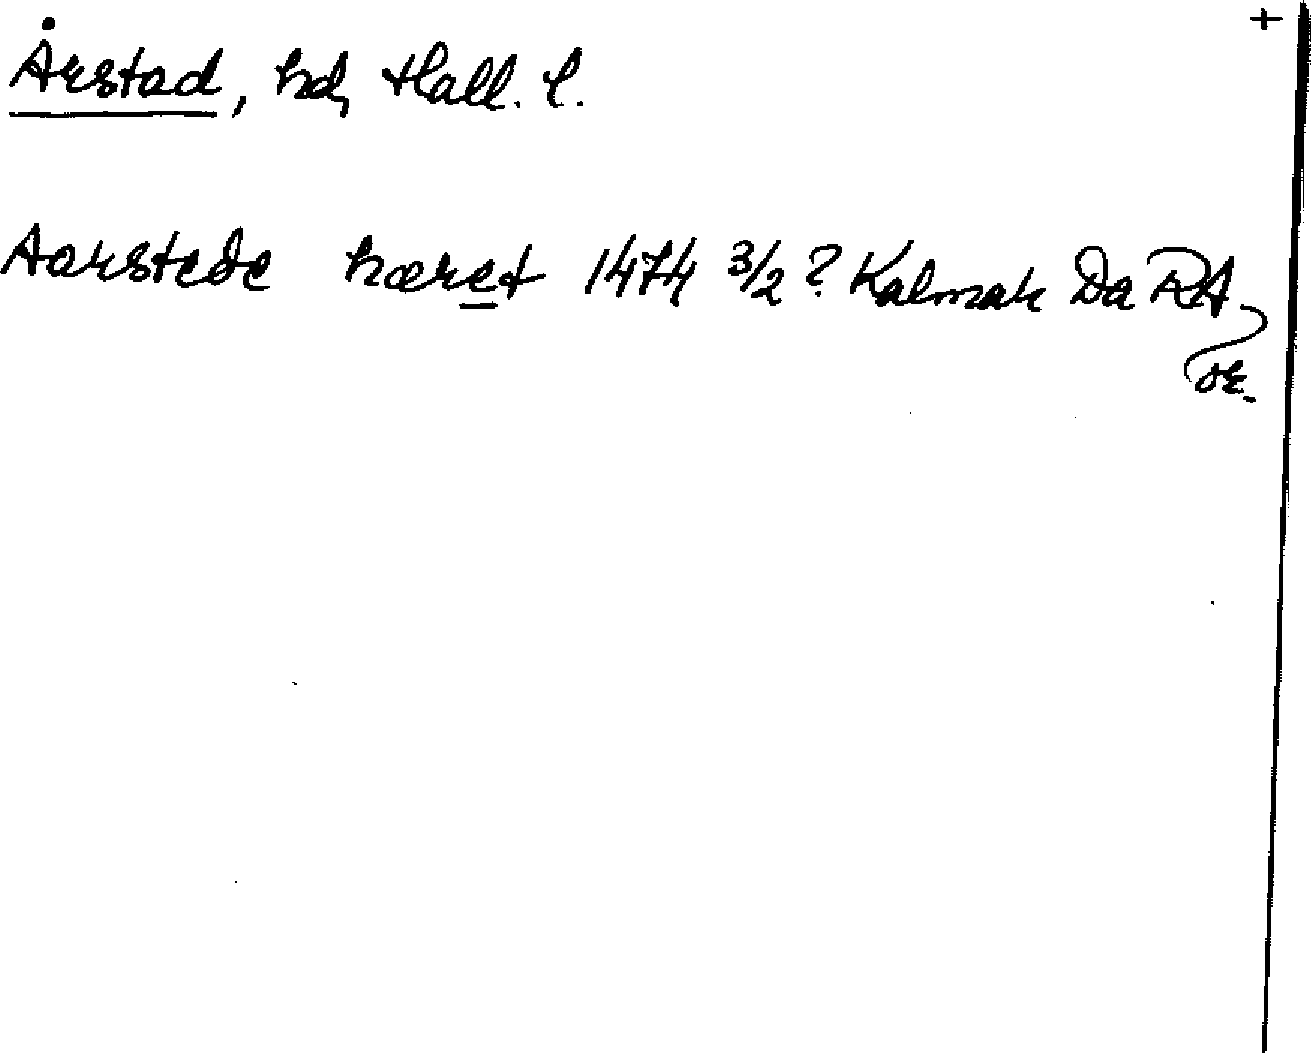 +
Årstad, hd, Hall. l.
Aarstede hæret 1474 3/2? Kalmar Da RA,
or.